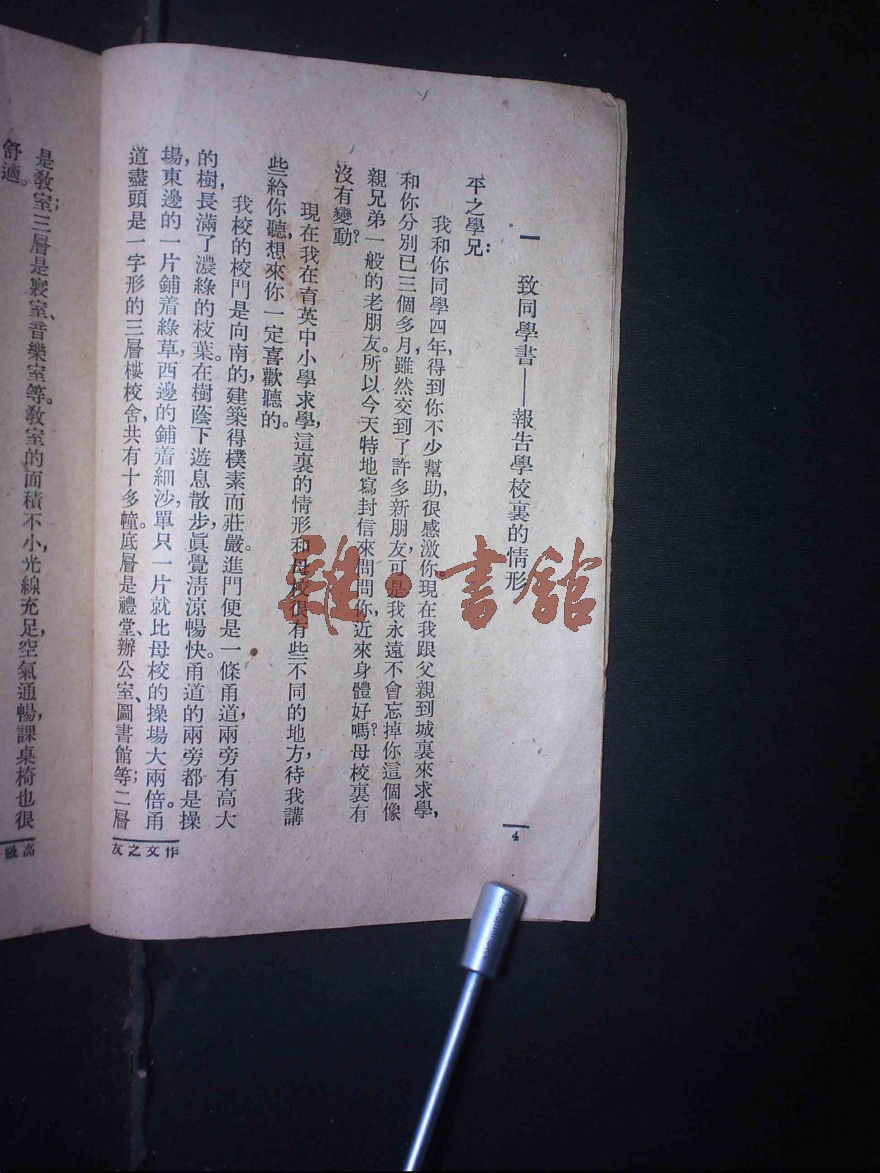 一　致同學書——報告學校裏的情形
平之學兄：
我和你同學四年，得到你不少幫助，很感激你。現在我跟父親到城裏來求學，
和你分別已三個多月，雖然交到了許多新朋友，可是我永遠不會忘掉你這個像
親兄弟一般的老朋友。所以今天特地寫封信來問問你，近來身體好嗎？母校裏有
沒有變動？
現在我在育英中小學求學，這裏的情形和母校很有些不同的地方，待我講
些給你聽，想來你一定喜歡聽的。
我校的校門是向南的，建築得樸素而莊嚴。進門便是一條甬道，兩旁有高大
的樹，長滿了濃綠的枝葉。在樹蔭下遊息散步，眞覺清涼暢快。甬道的兩旁都是操
場，東邊的一片鋪着綠草，西邊的鋪着細沙，單只一片就比母校的操場大兩倍。甬
道盡頭是一字形的三層樓校舍，共有十多幢。底層是禮堂、辦公室、圖書館等；二層
是教室；三層是寢室、音樂室等。教室的面積不小，光線充足，空氣通暢，課桌椅也很
舒適。
4
作文之友
高級
雜·書館